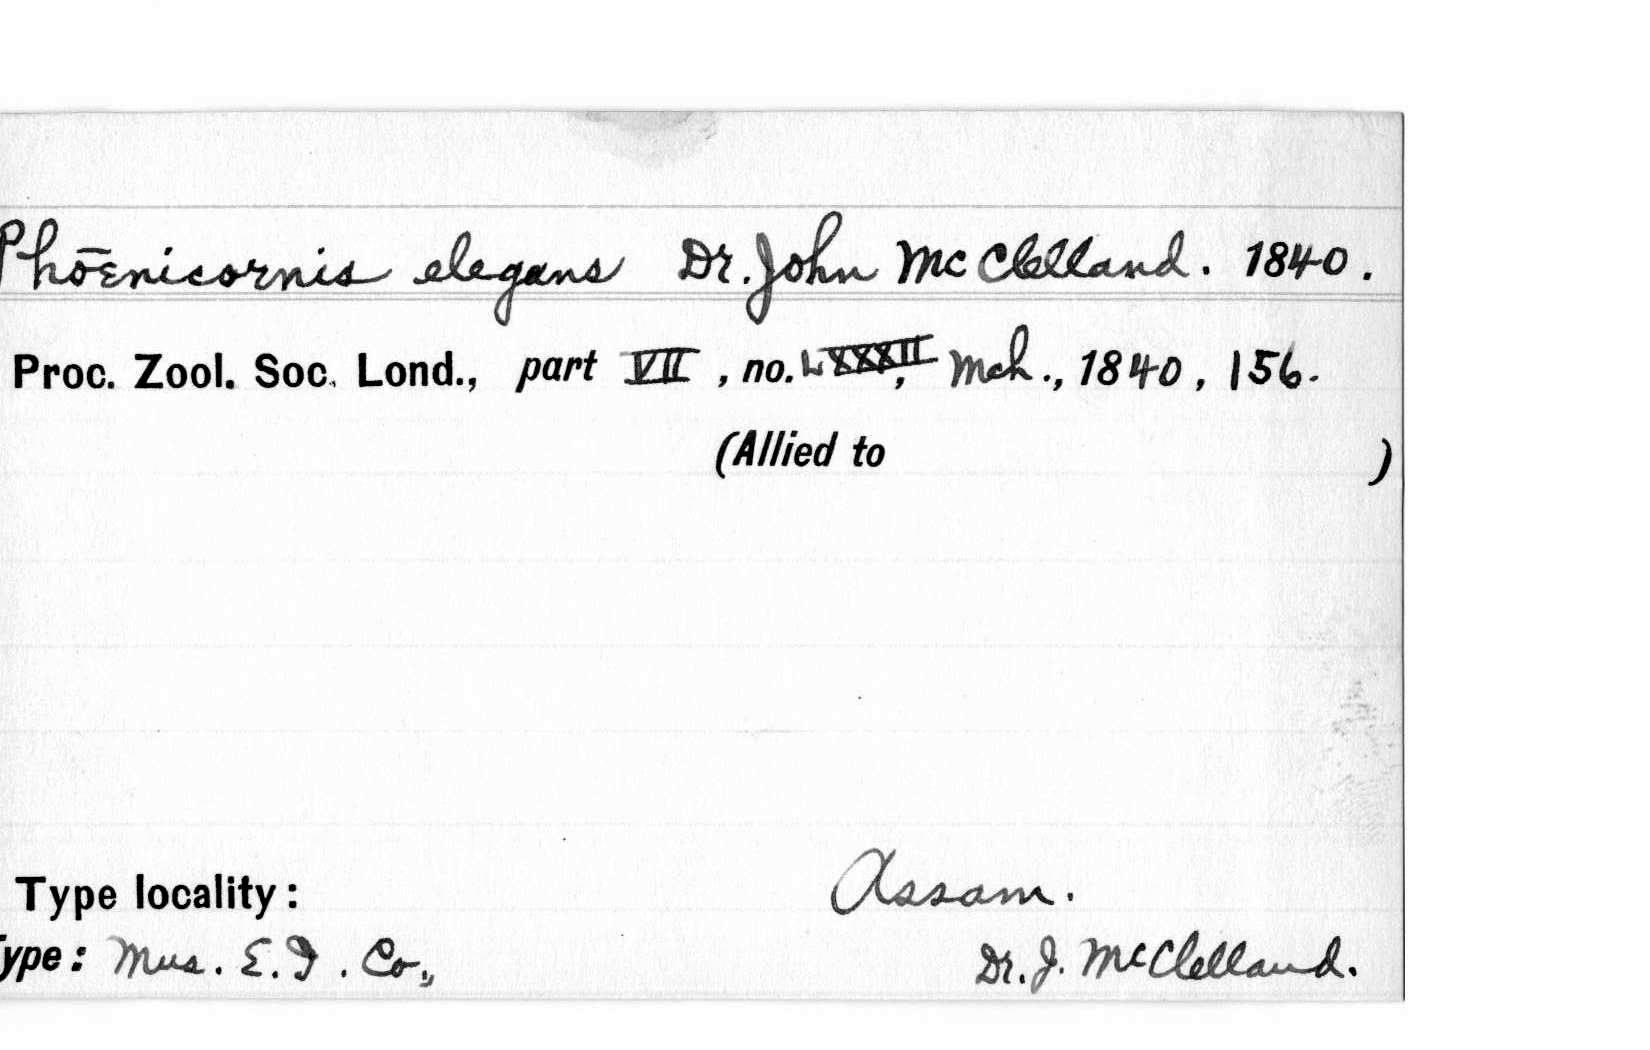 Phōenicornis elegans Dr. John McClelland. 1840.
Proc. Zool. Soc. Lond., part VII, no. LXXXII, Mch., 1840, 156.
(Allied to )
Type locality: Assam.
ype: Mus. E.I. Co., Dr. J. McClelland.